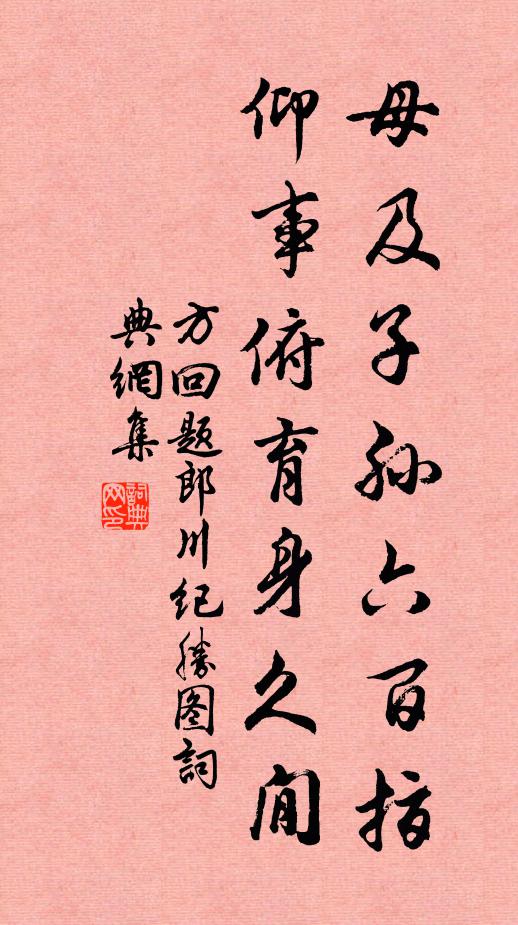 母及子孙六百指
仰事俯育身久閒
方回题郎川纪胜图詞
典網集
詞典
网印